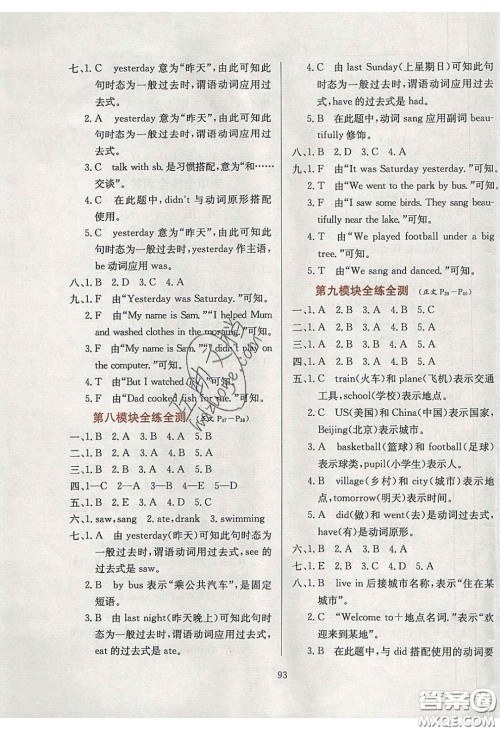 七、1. C　yesterday 意为“昨天”,由此可知此
句时态为一般过去时,谓语动词应用过
去式。
2. A　yesterday 意为“昨天”,由此可知此
句时态为一般过去时,谓语动词应用过
去式。
3. C　talk with sb. 是习惯搭配,意为“和……
交谈”。
4. C　在此题中，didn't 与动词原形搭配
使用。
5. C　yesterday 意为“昨天”,由此可知此
句时态为一般过去时,yesterday 作主语,
be 动词应用 was。
八、1. B　2. D　3. C　4. A
九、1. F　由“Yesterday was Saturday.”可知。
2. F　由“My name is Sam.”“I helped Mum
and washed clothes in the morning.”可知。
3. F　由“My name is Sam.”“I didn't play on
the computer.”可知。
4. T　由“But I watched TV.”可知。
5. F　由“Dad cooked fish for me.”可知。
第八模块全练全测 (正文 P₃₇—P₃₈)
一、1. B　2. A　3. B　4. A　5. A
二、1. A　2. B　3. B　4. A　5. A
三、1. A　2. A　3. B　4. B　5. A
四、1—C　2—A　3—B　4—E　5—D
五、1. B　2. D　3. C　4. A　5. D
六、1. saw, sang　2. ate, drank　3. swimming
七、1. A　由 yesterday(昨天)可知此句时态为
一般过去时,谓语动词用过去式,see 的
过去式是 saw。
2. B　by bus 表示“乘公共汽车”,是固定
短语。
3. B　由 last night(昨天晚上)可知此句时
态为一般过去时,谓语动词用过去式,
eat 的过去式是 ate。
4. C　由 last Sunday(上星期日)可知此句
时态为一般过去时,谓语动词应用过去
式,have 的过去式是 had。
5. B　在此题中,动词 sang 应用副词 beau-
tifully 修饰。
八、1. B　2. D　3. C　4. A
九、1. F　由“It was Saturday yesterday.”可知。
2. T　由“We went to the park by bus.”可知。
3. F　由“I saw some birds. They sang beau-
tifully.”可知。
4. T　由“We played football under a big
tree.”可知。
5. T　由“We sang and danced.”可知。
第九模块全练全测
一、1. A　2. B　3. A　4. B　5. C
二、1. A　2. B　3. B　4. A　5. B
三、1. B　2. B　3. A　4. A　5. B
四、1. A　2. B　3. A　4. A　5. B
五、1. C　train(火车)和 plane(飞机)表示交通
工具,school(学校)表示地点。
2. C　US(美国)和 China(中国)表示国家,
Beijing(北京)表示城市。
3. A　basketball(篮球)和 football(足球)
表示球类,pupil(小学生)表示人。
4. B　village(乡村)和 city(城市)表示地
点,tomorrow(明天)表示时间。
5. A　did(做)和 went(去)是动词过去式,
have(有)是动词原形。
六、1. A　2. B　3. B　4. A　5. A
七、1. E　2. B　3. A　4. C　5. D
八、1. B　live in 后接城市名称,表示“住在某
城市”。
2. C　“Welcome to+地点名词.”表示“欢
迎来到某地”。
3. B　在此题中,与 did 搭配使用的动词要
93
答案圈
MXQE.COM